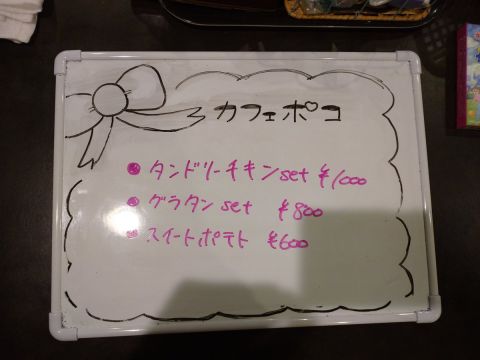 カフェポコ
● タンドリーチキンset ¥1000
● グラタンset ¥800
● スイートポテト ¥600